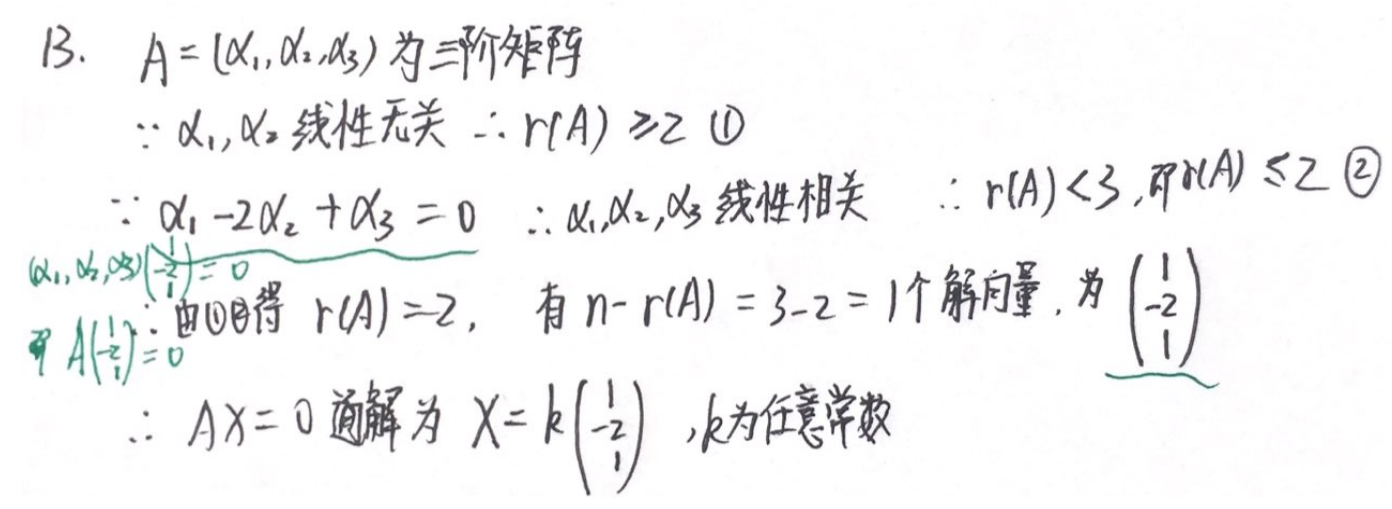 13. A = (α₁, α₂, α₃) 为三阶矩阵
∵ α₁, α₂ 线性无关 ∴ r(A) ≥ 2 ①
∵ α₁ - 2α₂ + α₃ = 0 ∴ α₁, α₂, α₃ 线性相关 ∴ r(A) < 3, 即 r(A) ≤ 2 ②
(α₁, α₂, α₃) (1 -2 1) = 0
∴ 由①②得 r(A) = 2, 有 n - r(A) = 3 - 2 = 1个解向量, 为 (1 -2 1)
即 A (1 -2 1) = 0
∴ AX = 0 通解为 X = k (1 -2 1), k为任意常数